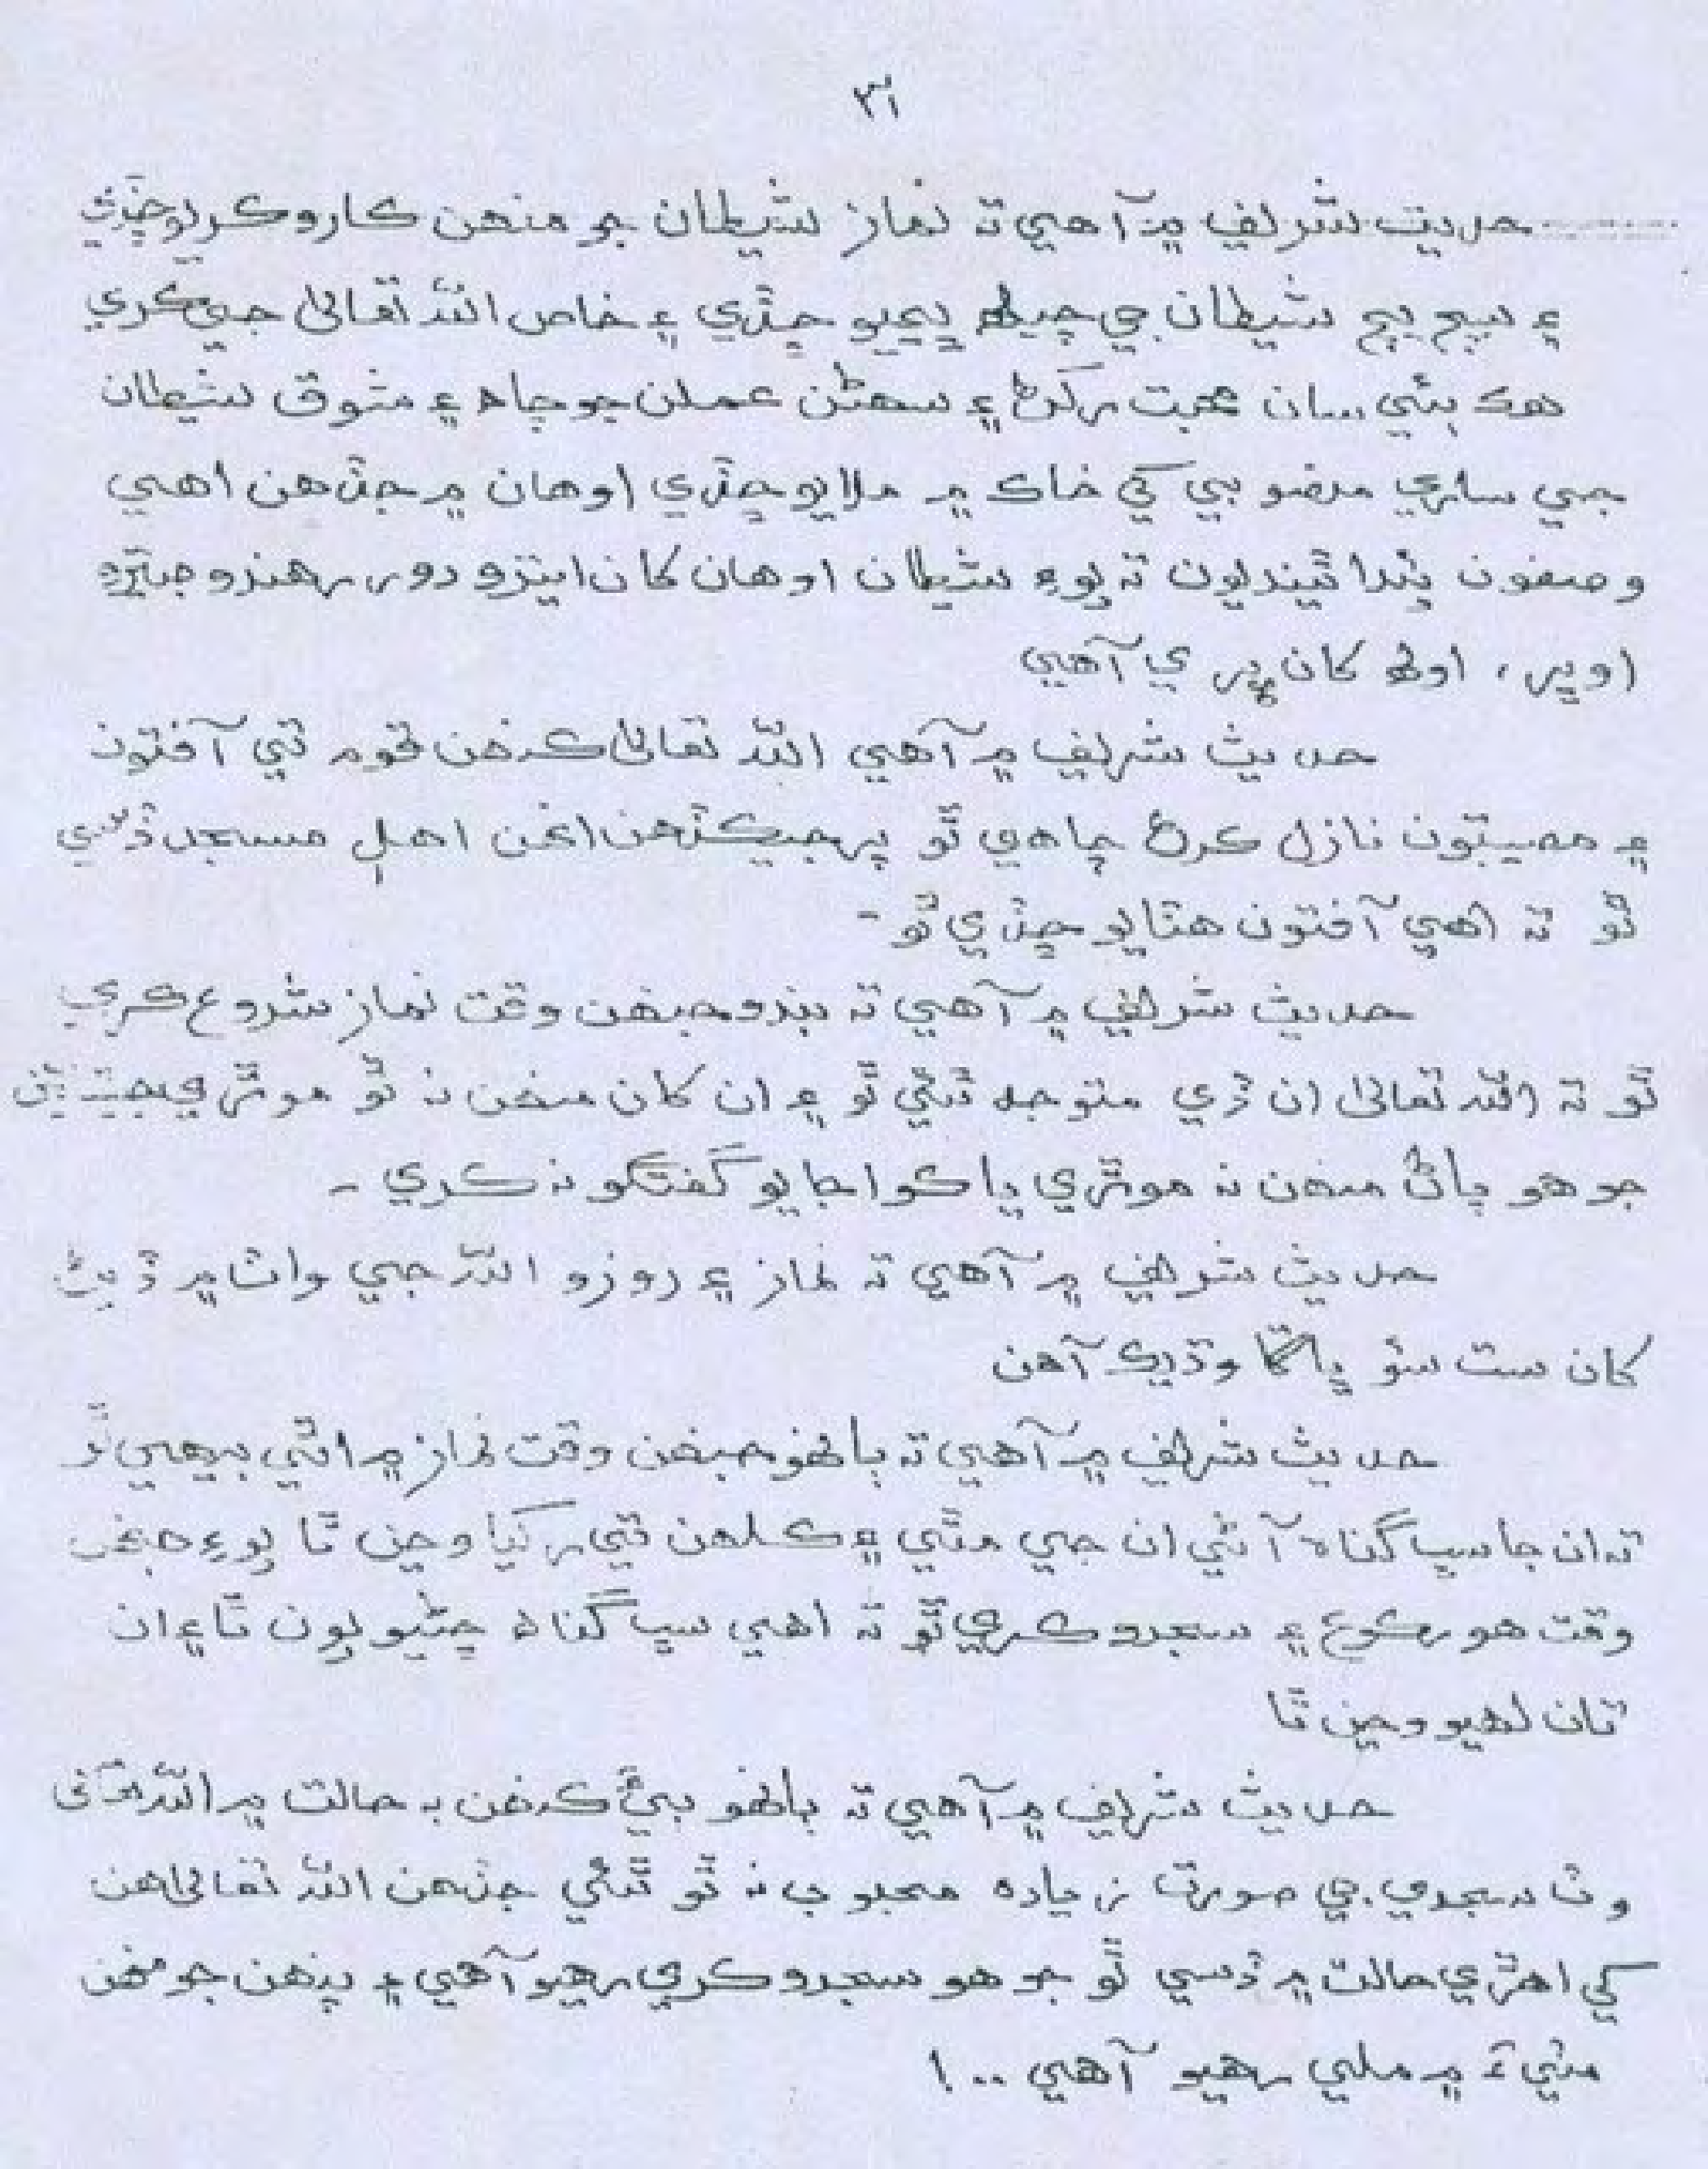 ٣١
حديث شريف ۾ آهي ته نماز شيطان جو منهن ڪارو ڪريو ڇڏي
۽ سچ پچ شيطان جي چيلھ ڀڃيو ڇڏي ۽ خاص الله تعالى جي ڪري
هڪ ٻئي سان محبت رکڻ ۽ سهڻن عملن جو چاه ۽ شوق شيطان
جي ساري منصوبي کي خاڪ ۾ ملايو ڇڏي اوهان ۾ جڏهن اهي
وصفون پئدا ٿينديون ته پوءِ شيطان اوهان کان ايترو دور رهندو جيترو
اوڀر، اولھ کان پري آهي
حديث شريف ۾ آهي الله تعالى ڪنهن قوم تي آفتون
۽ مصيبتون نازل ڪرڻ چاهي ٿو پر جيڪڏهن انهن اهل مسجد ڏسي
ٿو ته اهي آفتون هٽايو ڇڏي ٿو-
حديث شريف ۾ آهي ته بندو جنهن وقت نماز شروع ڪري
ٿو ته الله تعالى ان ڏي متوجه ٿئي ٿو ۽ ان کان منهن نه ٿو موڙي
جو هو پاڻ منهن نه موڙي يا ڪو اجايو گفتگو نه ڪري -
حديث شريف ۾ آهي ته نماز ۽ روزو الله جي واٽ ۾ ڏيڻ
کان ست سؤ ڀاڱا وڌيڪ آهن
حديث شريف ۾ آهي ته ٻانهو جنهن وقت نماز ۾ اٿي بيهي ٿو
ته ان جا سڀ گناه آڻي ان جي مٿي ۽ ڪلهن تي رکيا وڃن ٿا پوءِ جنهن
وقت هو رڪوع ۽ سجدو ڪري ٿو ته اهي سڀ گناه ڇڻيو پون ٿا ۽ ان
تان لهيو وڃن ٿا
حديث شريف ۾ آهي ته ٻانهو ٻيءَ ڪنهن به حالت ۾ الله تعالى
وٽ سجدي جي صورت زياده محبوب نه ٿو ٿئي جڏهن الله تعالى هن
کي اهڙي حالت ۾ ڏسي ٿو جو هو سجدو ڪري رهيو آهي ۽ پنهن جو منهن
مٽيءَ ۾ ملي رهيو آهي ..!